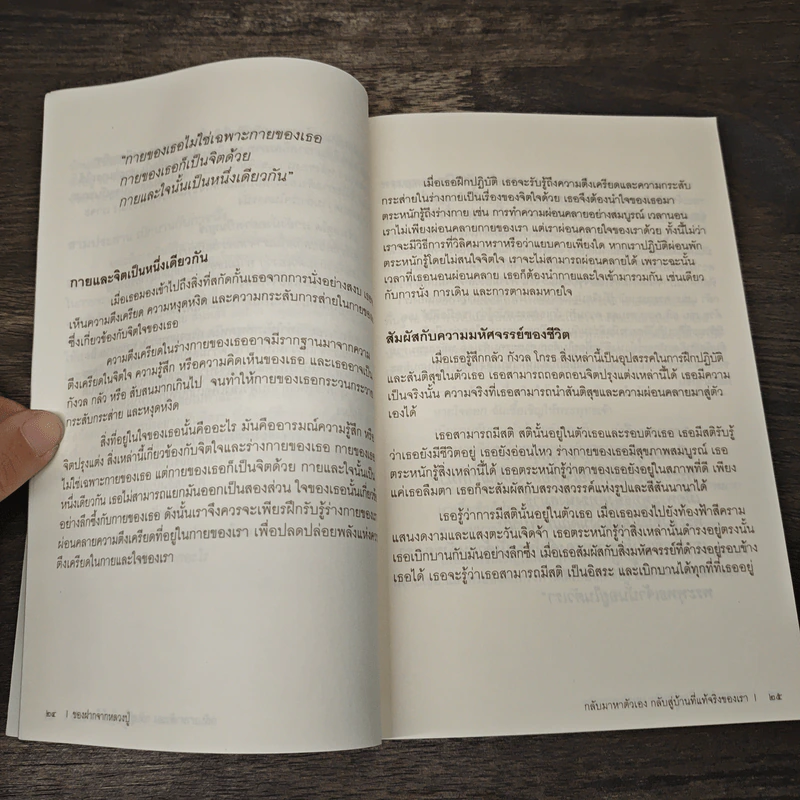 "กายของเธอไม่ใช่เฉพาะกายของเธอ
กายของเธอก็เป็นจิตด้วย
กายและใจนั้นเป็นหนึ่งเดียวกัน"
กายและจิตเป็นหนึ่งเดียวกัน
เมื่อเธอมองเข้าไปถึงสิ่งที่สกัดกั้นเธอจากการนั่งอย่างสงบ
เห็นความตึงเครียด ความหงุดหงิด และความกระสับการส่ายในกายของ
ซึ่งเกี่ยวข้องกับจิตใจของเธอ
ความตึงเครียดในร่างกายของเธออาจมีรากฐานมาจากความ
ตึงเครียดในจิตใจ ความรู้สึก หรือความคิดเห็นของเธอ และเธออาจเป็น
กังวล กลัว หรือ สับสนมากเกินไป จนทำให้กายของเธอกระวนกระวาย
กระสับกระส่าย และหงุดหงิด
สิ่งที่อยู่ในใจของเธอนั้นคืออะไร มันคืออารมณ์ความรู้สึก หรือ
จิตปรุงแต่ง สิ่งเหล่านี้เกี่ยวข้องกับจิตใจและร่างกายของเธอ กายของเธอ
ไม่ใช่เฉพาะกายของเธอ แต่กายของเธอก็เป็นจิตด้วย กายและใจนั้นเป็น
หนึ่งเดียวกัน เธอไม่สามารถแยกมันออกเป็นสองส่วน ใจของเธอนั้นเกี่ยวข้อง
อย่างลึกซึ้งกับกายของเธอ ดังนั้นเราจึงควรจะเพียรฝึกรับรู้ร่างกายของเรา
ผ่อนคลายความตึงเครียดที่อยู่ในกายของเรา เพื่อปลดปล่อยพลังแห่งความ
ตึงเครียดในกายและใจของเรา
๒๔ | ของฝากจากหลวงปู่
เมื่อเธอฝึกปฏิบัติ เธอจะรับรู้ถึงความตึงเครียดและความกระสับ
กระส่ายในร่างกายเป็นเรื่องของจิตใจด้วย เธอจึงต้องนำใจของเธอมา
ตระหนักรู้ถึงร่างกาย เช่น การทำความผ่อนคลายอย่างสมบูรณ์ เวลานอน
เราไม่เพียงผ่อนคลายกายของเรา แต่เราผ่อนคลายใจของเราด้วย ทั้งนี้ไม่ว่า
เราจะมีวิธีการที่วิลิศมาหราหรือว่าแยบคายเพียงใด หากเราปฏิบัติผ่อนพัก
ตระหนักรู้โดยไม่สนใจจิตใจ เราจะไม่สามารถผ่อนคลายได้ เพราะฉะนั้น
เวลาที่เธอนอนผ่อนคลาย เธอก็ต้องนำกายและใจเข้ามารวมกัน เช่นเดียว
กับการนั่ง การเดิน และการตามลมหายใจ
สัมผัสกับความมหัศจรรย์ของชีวิต
เมื่อเธอรู้สึกกลัว กังวล โกรธ สิ่งเหล่านี้เป็นอุปสรรคในการฝึกปฏิบัติ
และสันติสุขในตัวเธอ เธอสามารถถอดถอนจิตปรุงแต่งเหล่านี้ได้ เธอมีความ
เป็นจริงนั้น ความจริงที่เธอสามารถนำสันติสุขและความผ่อนคลายมาสู่ตัว
เองได้
เธอสามารถมีสติ สตินั้นอยู่ในตัวเธอและรอบตัวเธอ เธอมีสติรับรู้
ว่าเธอยังมีชีวิตอยู่ เธอยังอ่อนไหว ร่างกายของเธอมีสุขภาพสมบูรณ์ เธอ
ตระหนักรู้สิ่งเหล่านี้ได้ เธอตระหนักรู้ว่าตาของเธอยังอยู่ในสภาพที่ดี เพียง
แค่เธอลืมตา เธอก็จะสัมผัสกับสรวงสวรรค์แห่งรูปและสีสันนานาได้
เธอรู้ว่าการมีสตินั้นอยู่ในตัวเธอ เมื่อเธอมองไปยังท้องฟ้าสีคราม
แสนงดงามและแสงตะวันเจิดจ้า เธอตระหนักรู้ว่าสิ่งเหล่านั้นดำรงอยู่ตรงนั้น
เธอเบิกบานกับมันอย่างลึกซึ้ง เมื่อเธอสัมผัสกับสิ่งมหัศจรรย์ที่ดำรงอยู่รอบข้าง
เธอได้ เธอจะรู้ว่าเธอสามารถมีสติ เป็นอิสระ และเบิกบานได้ทุกที่ที่เธออยู่
กลับมาหาตัวเอง กลับสู่บ้านที่แท้จริงของเรา | ๒๕